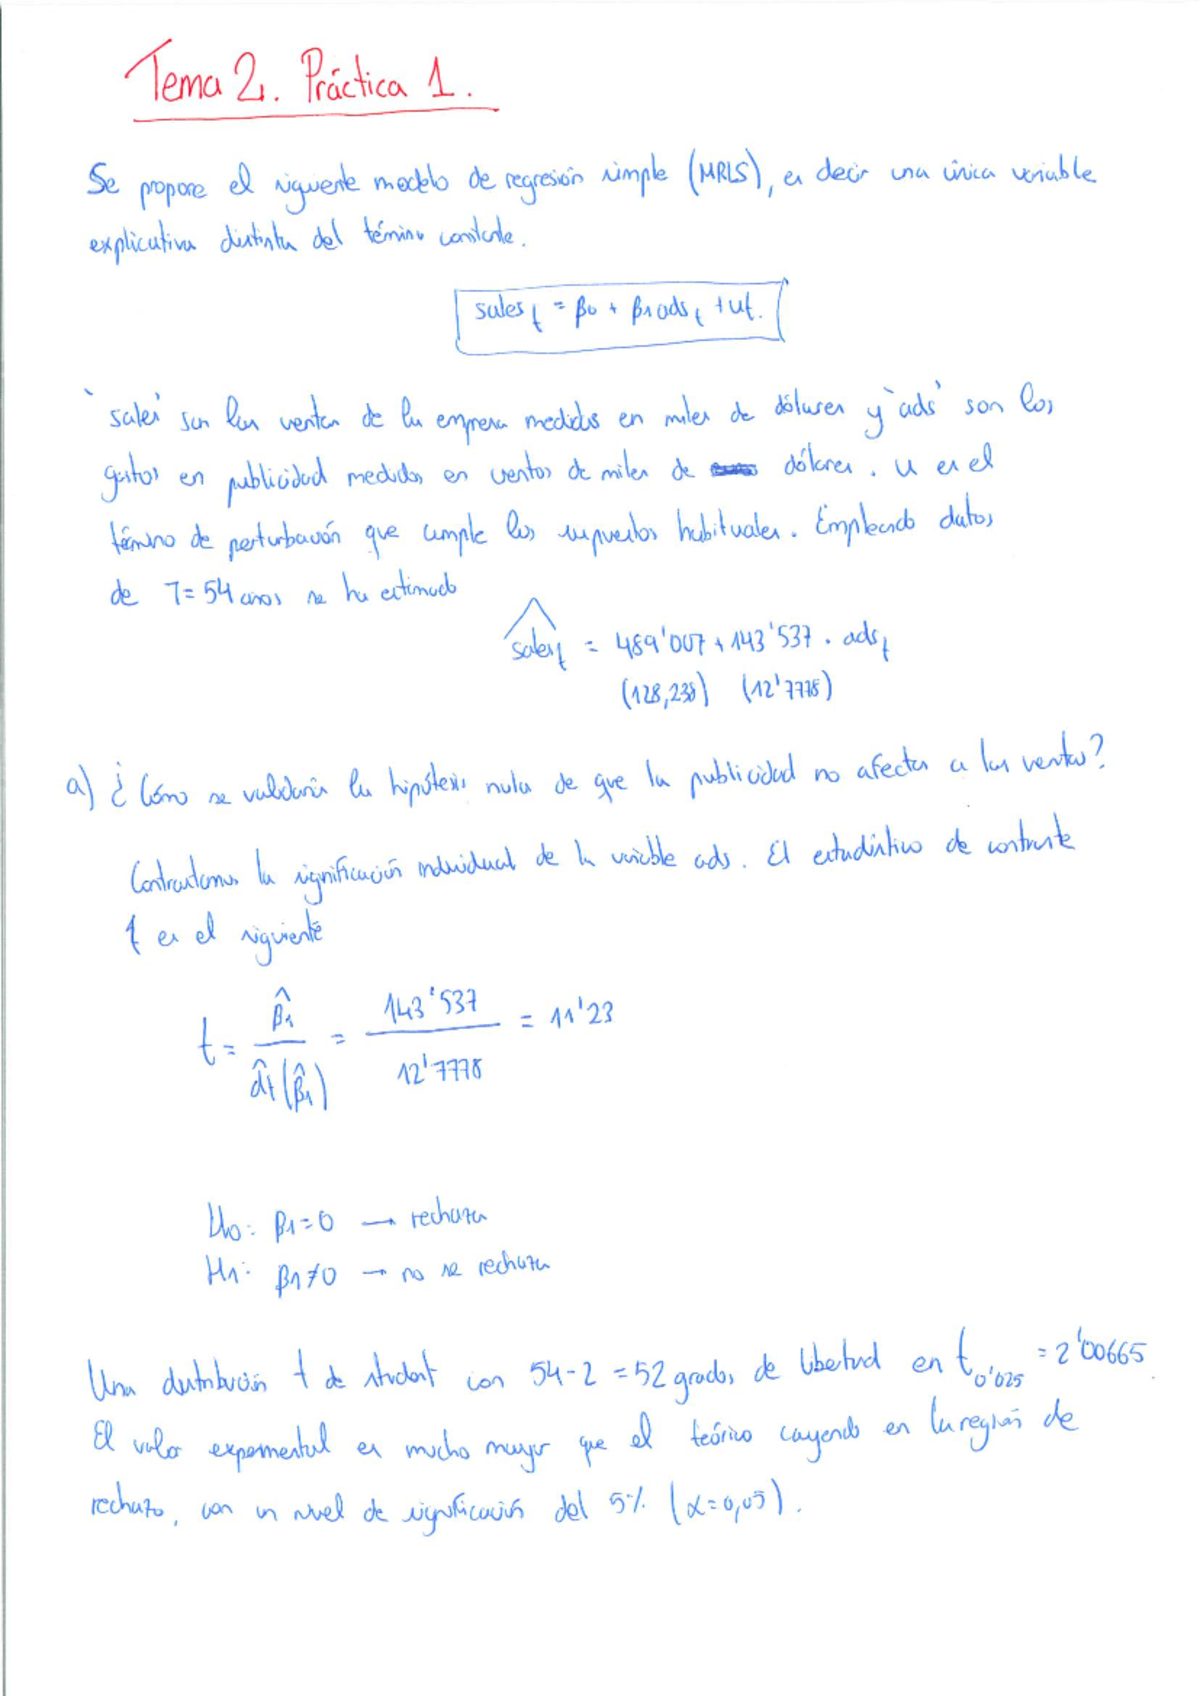 Tema 2. Práctica 1.
Se propone el siguiente modelo de regresión simple (MRLS), es decir una única variable
explicativa distinta del término constante.
sales t = β0 + β1 ads t + ut.
'sales' son las ventas de la empresa medidas en miles de dólares y 'ads' son los
gastos en publicidad medidos en cientos de miles de dólares. u es el
término de perturbación que cumple los supuestos habituales. Empleando datos
de T=54 años se ha estimado
sales t = 489'007 + 143'537 · ads t
(128,238) (12'7778)
a) ¿Cómo se validaría la hipótesis nula de que la publicidad no afecta a las ventas?
Contrastamos la significación individual de la variable ads. El estadístico de contraste
t es el siguiente
t = β̂1 / d̂t(β̂1) = 143'537 / 12'7778 = 11'23
H0: β1=0 → rechaza
H1: β1≠0 → no se rechaza
Una distribución t de student con 54-2 = 52 grados de libertad en t 0'025 = 2'00665.
El valor experimental es mucho mayor que el teórico cayendo en la región de
rechazo, con un nivel de significación del 5% (α=0,05).